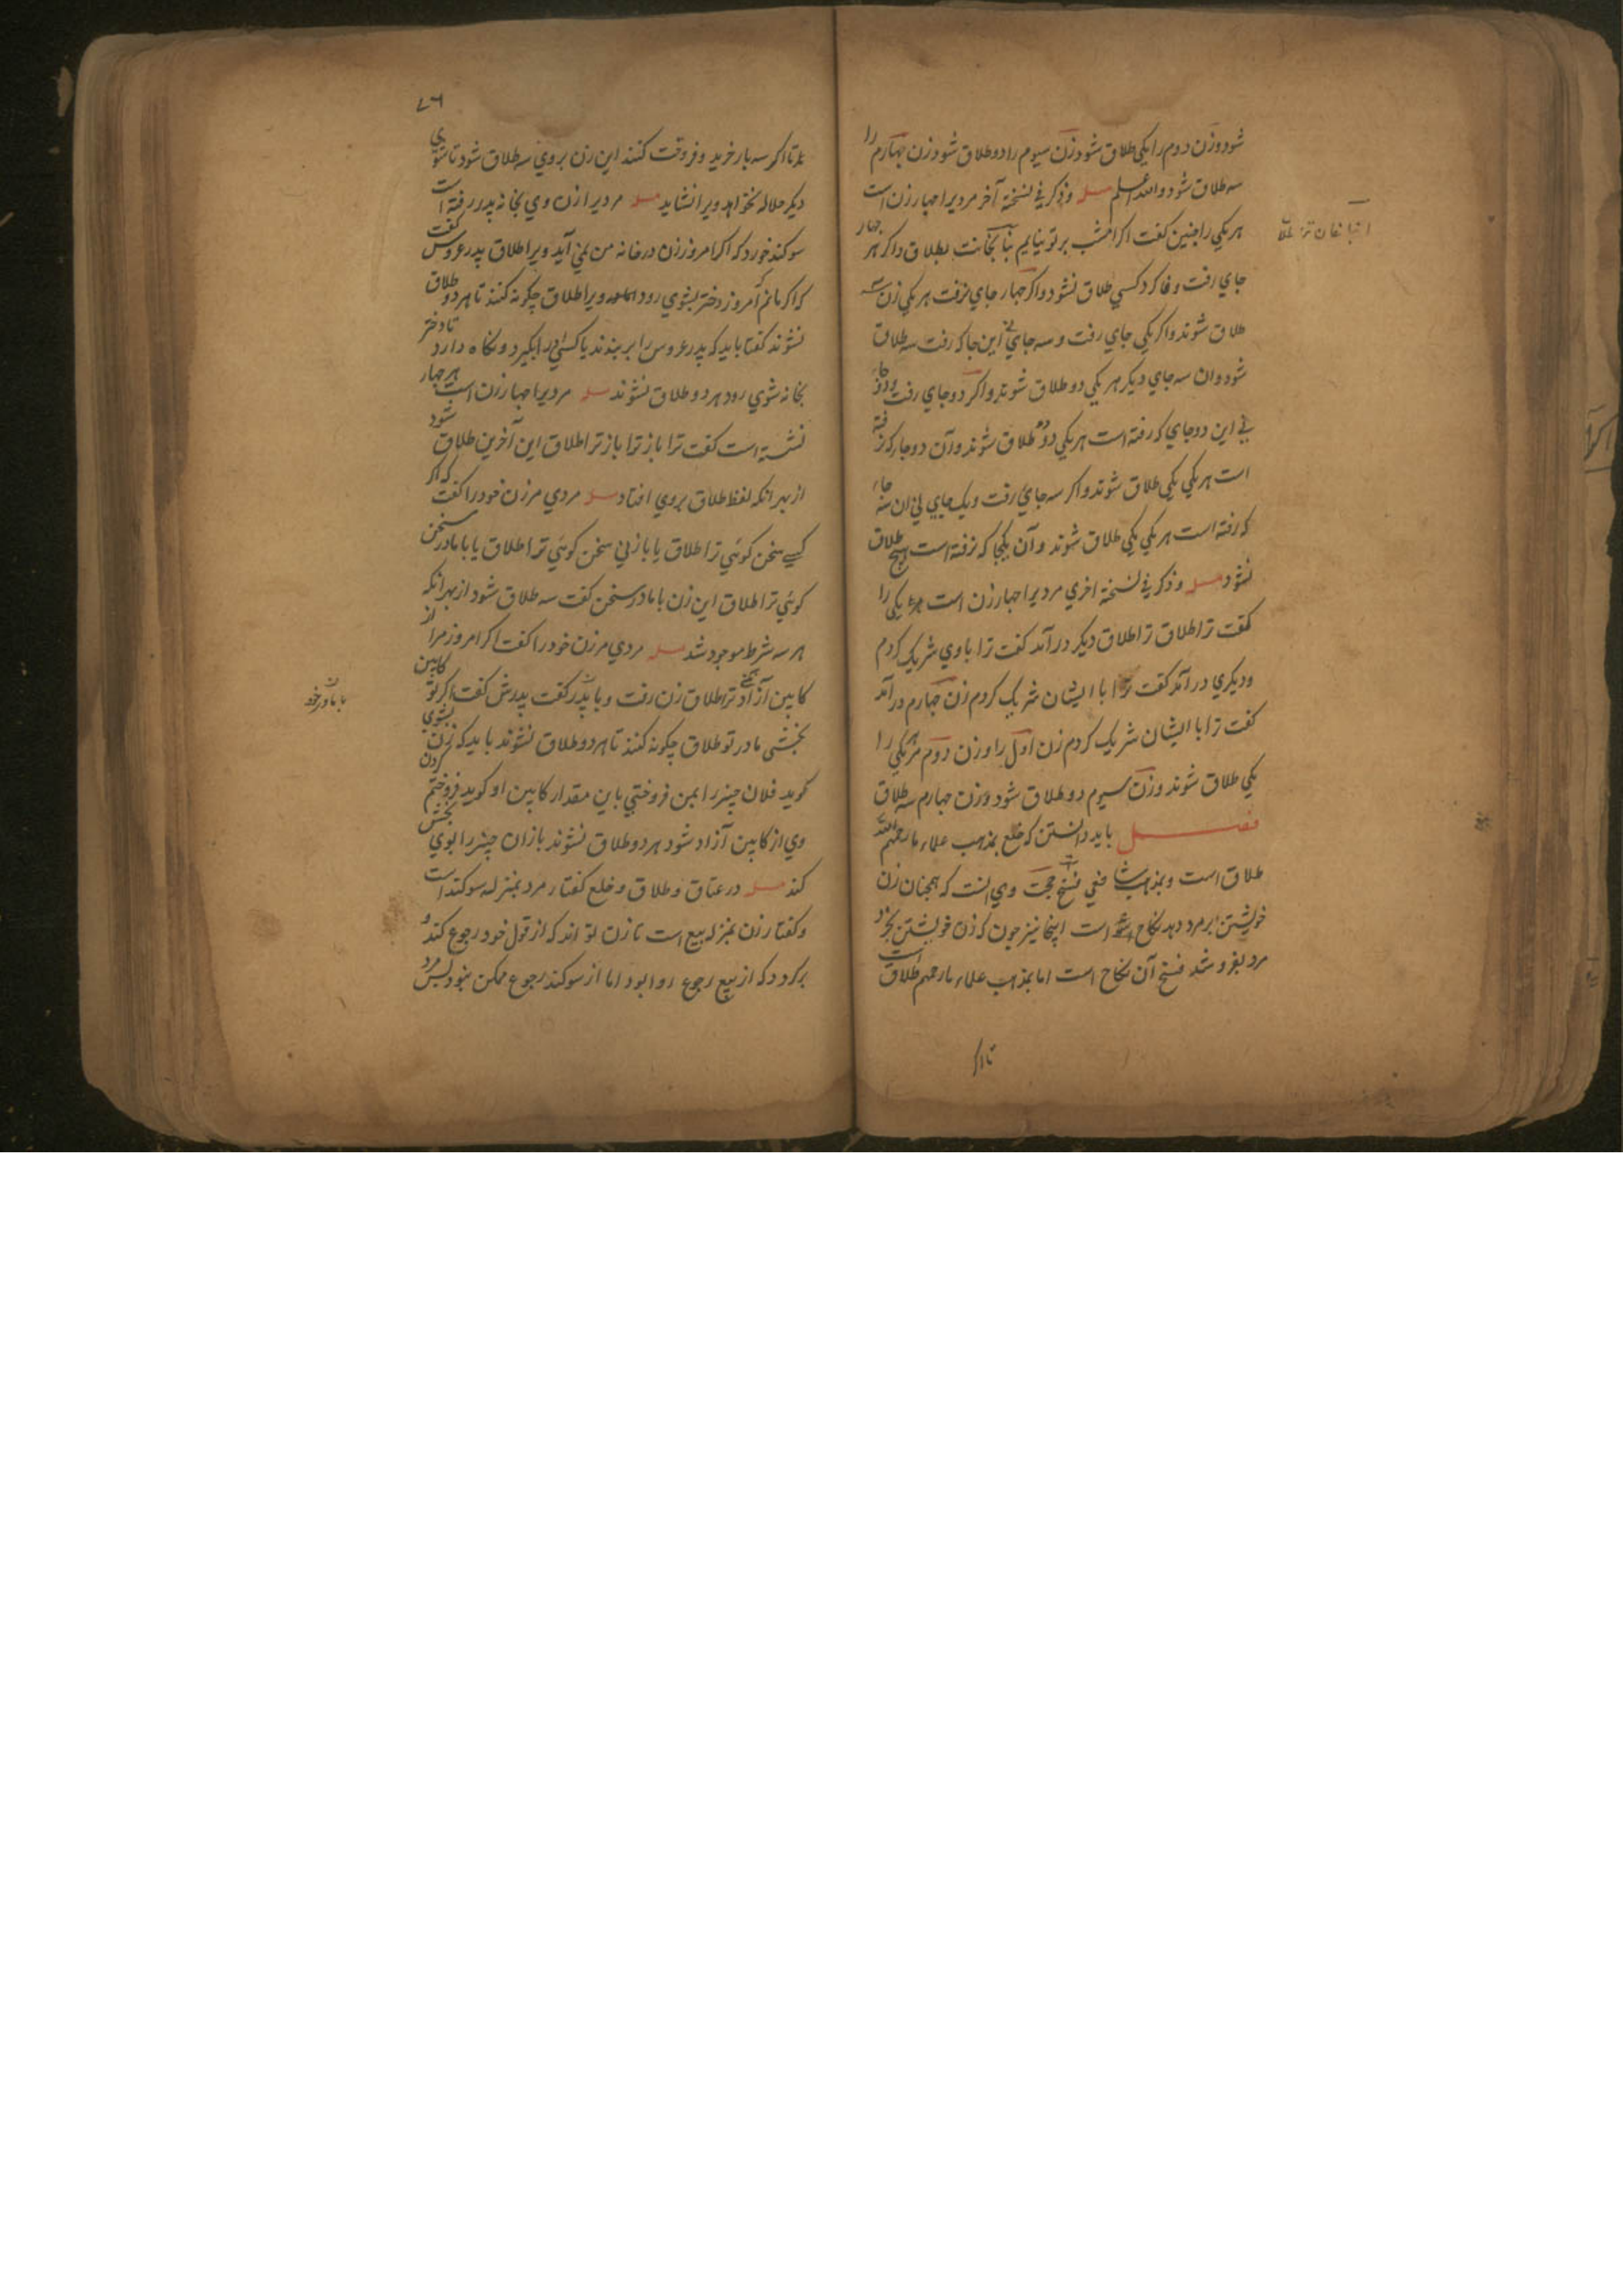 شود و زن دوم را یکی طلاق شود زن سیوم را دو طلاق شود زن چهارم را
سه طلاق شود والله اعلم مسله و ذکر فی نسخة آخر مردیرا چهار زن است
هر یکی را چنین گفت اگر امشب بر تو نیایم بطلاق و اگر هر چهار
جای رفت وفا کرد کسی طلاق نشود و اگر چهار جای نرفت هر یکی زن سه
طلاق شوند و اگر یکی جای رفت و سه جای نی این جا که رفت سه طلاق
شود وان سه جای دیگر هر یکی دو طلاق شوند و اگر دو جای رفت و دو جای
نی این دو جای که رفته است هر یکی دو طلاق شوند و آن دو جا که نرفته
است هر یکی یکی طلاق شوند و اگر سه جای رفت و یک جای نی ان سه جای
که رفته است هر یکی یکی طلاق شوند و آن یکجا که نرفته است هیچ طلاق
نشود مسله و ذکر فی نسخة اخری مردیرا چهار زن است یکی را
گفت ترا طلاق ترا طلاق دیگر در آمد گفت ترا با وی شریک کردم
و دیگری در آمد گفت ترا با ایشان شریک کردم زن چهارم در آمد
گفت ترا با ایشان شریک کردم زن اول را و زن دوم هر یکی را
یکی طلاق شوند و زن سیوم دو طلاق شود و زن چهارم سه طلاق
فصل باید دانستن که خلع بمذهب علماء ما رحمهم الله
طلاق است و بمذهب شافعی فسخ حجت وی انست که همچنان زن
خویشتن بر مرد دهد نکاح است اینجا نیز چون که زن خویشتن بخرد و
مرد بفروشد فسخ آن نکاح است اما بمذهب علماء ما رحمهم طلاق است
تا اگر
۷۶
تا اگر سه بار خرید و فروخت کنند این زن بروی سه طلاق شود تا شوی
دیگر حلاله نخواهد ویرا نشاید مسله مردیرا زن وی بخانه پدر رفته است
سوگند خورد که اگر امروز زن در خانه من نمی آید ویرا طلاق پدر عروس گفت
که اگر مانم که امروز دختر بشوی رود ویرا طلاق چگونه کنند تا هر دو طلاق
نشوند گفتا باید که پدر عروس را ببندند یا کسی ویرا بگیرد و نگاه دارد تا دختر
بخانه شوی رود هر دو طلاق نشوند مسله مردیرا چهار زن است هر چهار
نشسته است گفت ترا باز ترا باز ترا طلاق این آخرین طلاق شود
از بهر انکه لفظ طلاق بروی افتاد مسله مردی مر زن خود را گفت که اگر
کسی سخن گوئی ترا طلاق یا با زنی سخن گوئی ترا طلاق یا با مادر سخن
گوئی ترا طلاق این زن با مادر سخن گفت سه طلاق شود از بهر انکه
هر سه شرط موجود شد مسله مردی مر زن خود را گفت اگر امروز مرا از
کابین آزاد نکنی ترا طلاق زن رفت و با پدر گفت پدرش گفت اگر تو کابین
بخشی مادر تو طلاق چگونه کنند تا هر دو طلاق نشوند باید که زن بشوی
گوید فلان چیز را بمن فروختی باین مقدار کابین او گوید فروختم
وی از کابین آزاد شود هر دو طلاق نشوند باز ان چیز را بوی بخشش
کند مسله در عتاق و طلاق و خلع گفتار مرد بمنزله سوگند است
و گفتار زن بمنزله بیع است تا زن تواند که از قول خود رجوع کند و
برگردد که از بیع رجوع روا بود اما از سوگند رجوع ممکن نبود پس مرد